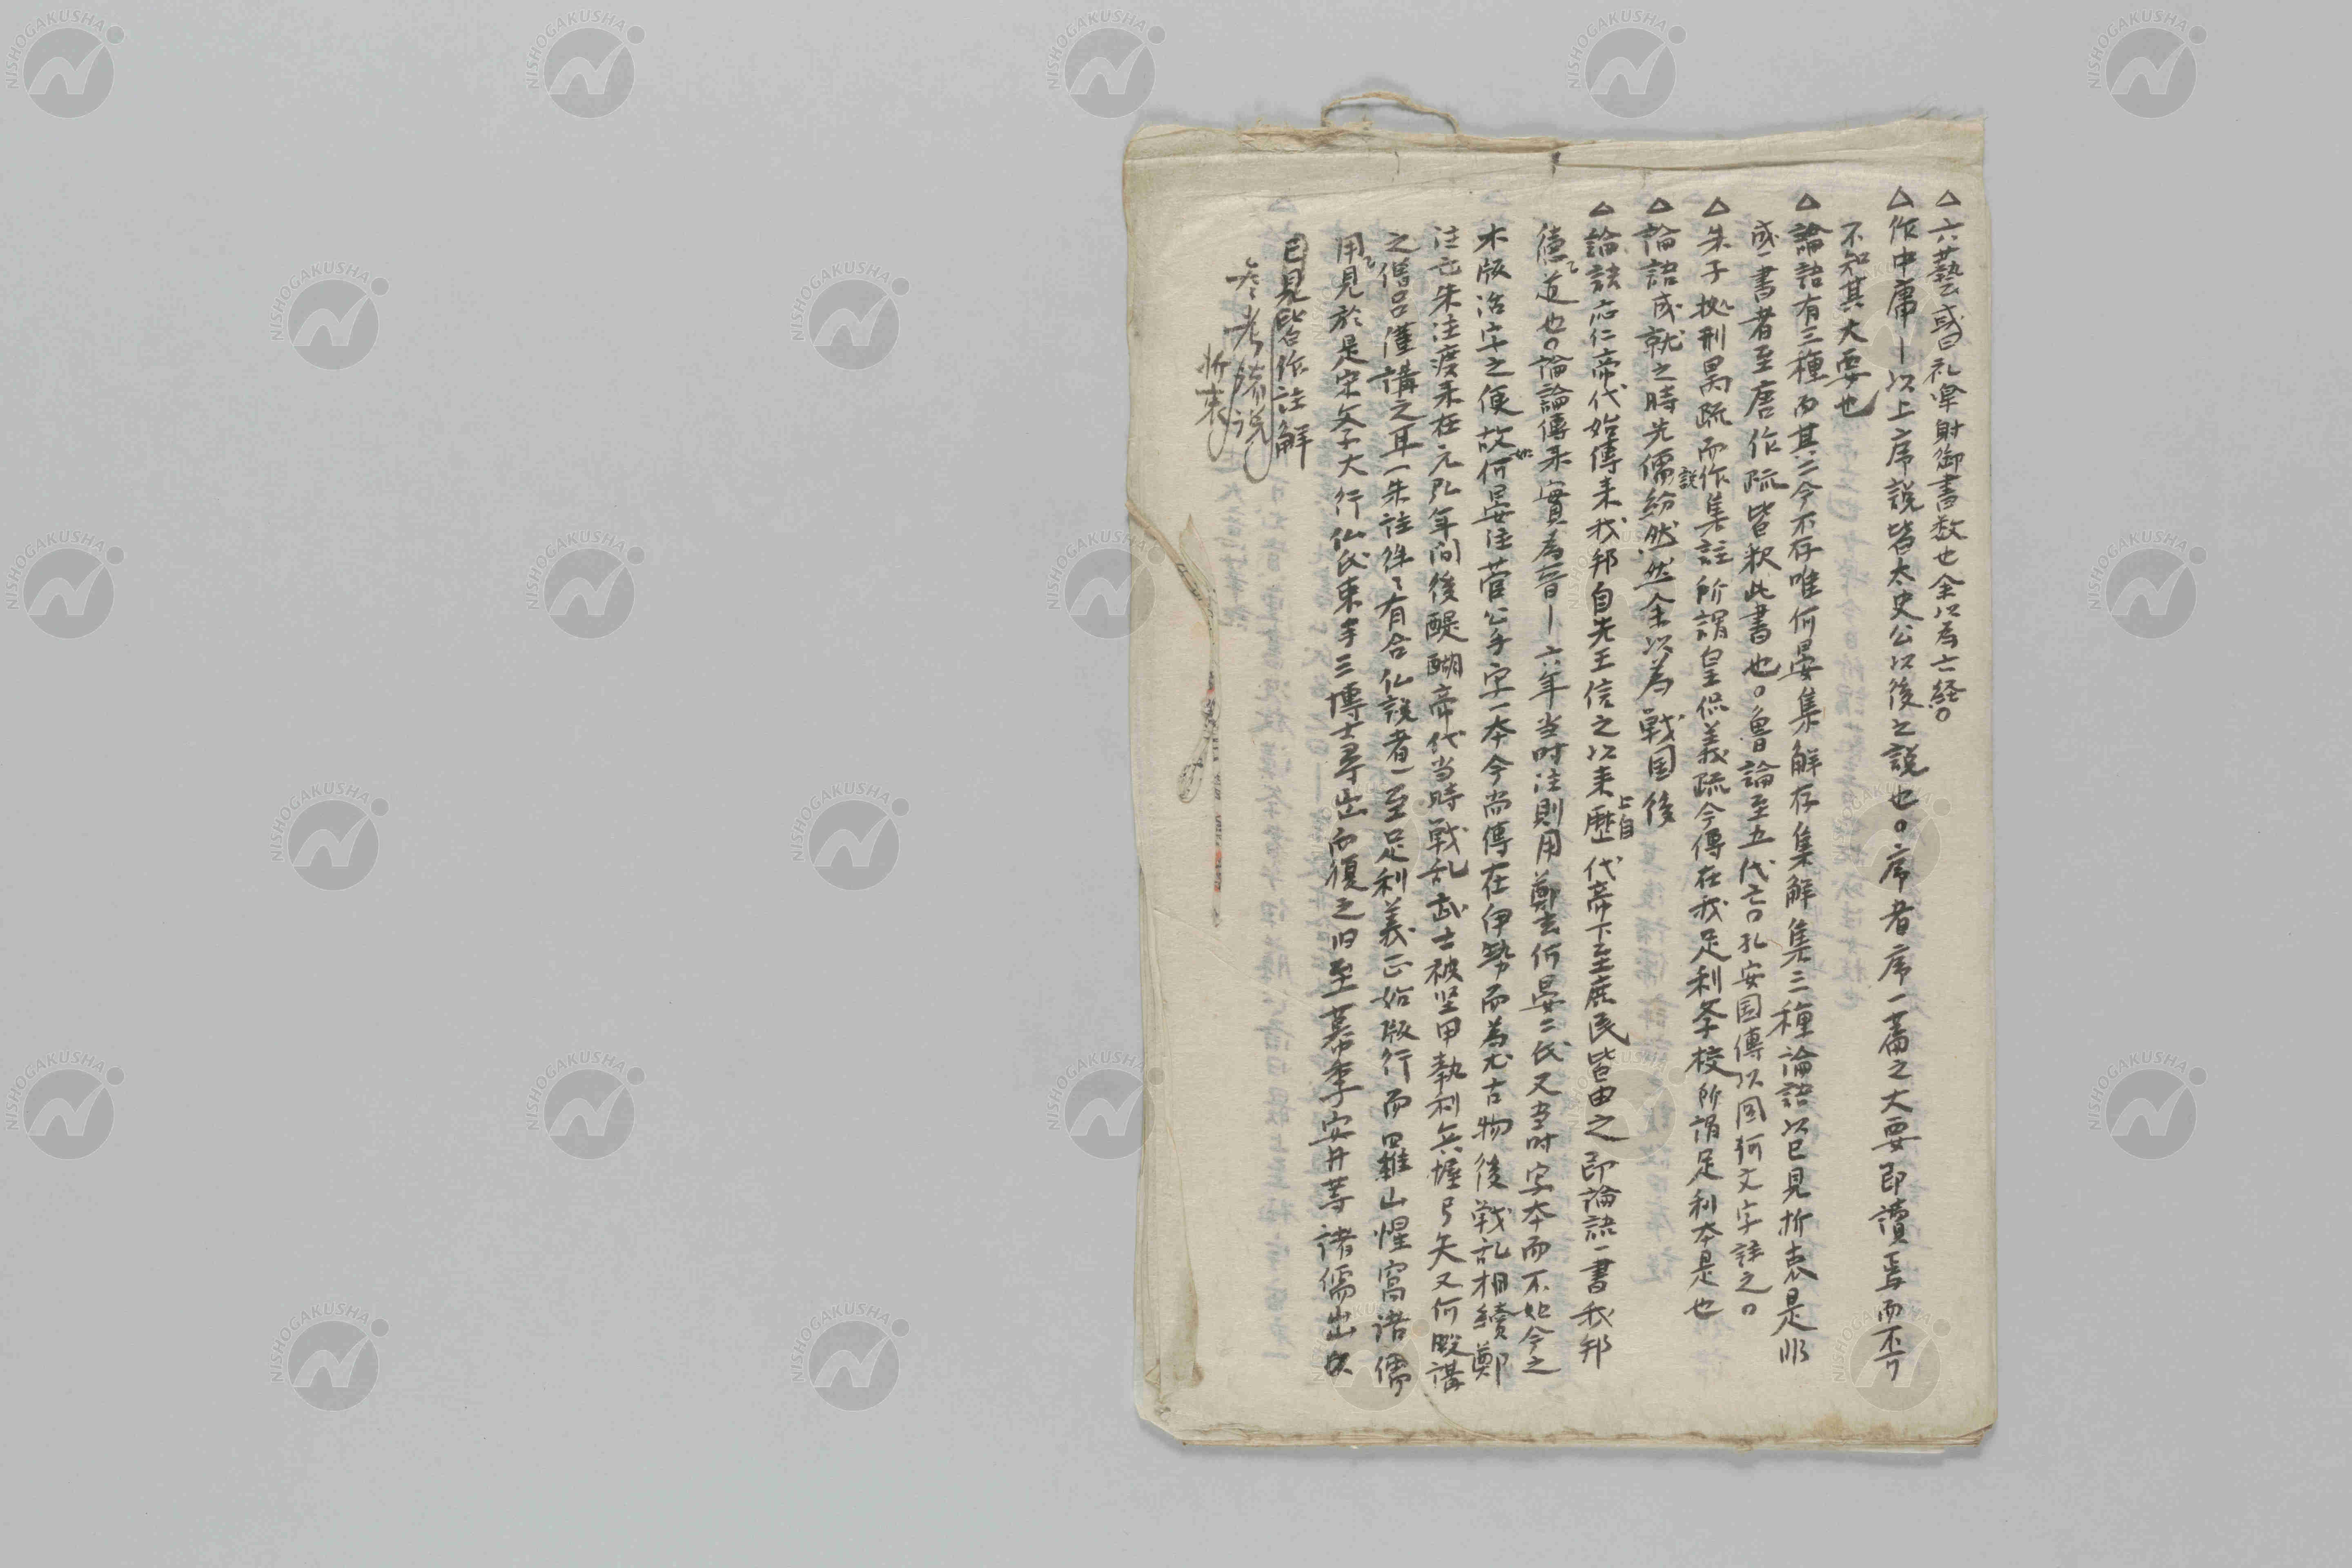 △六藝或曰礼楽射御書数也余以為六経。
△作中庸｜以上序説皆太史公以後之説也。序者序一書之大要即讀焉而不可
不知其大要也
△論語有三種而其二今不存唯何晏集解存集解集三種論語以己見折衷是
成一書者至唐作疏皆釈此書也。魯論至五代亡。孔安国傳以同何文字註之。
△朱子拠刑昺疏而作集註所謂皇侃義疏今傳在我足利学校所謂足利本是也
説
△論語成就之時先儒紛然然余以為戦国後
△論語応仁帝代始傳来我邦自先王信之以来歴代帝下至庶民皆由之即論語一書我邦
上自
徳道也。論語傳来實為晋｜六年当时注則用鄭玄何晏二氏又当时写本而不如今之
木版活字之便故何晏注菅公手写一本今尚傳在伊勢而為尤古物後戦乱相續鄭
如
注亡朱注渡来在元弘年间後醍醐帝代当時戦乱武士被坚甲執利兵握弓矢又何暇講
之僧呂僅講之耳一朱註往々有合仏説者一至足利義正始版行而羅山惺窩諸儒
用見於是宋天子大行仏氏東手三博士尋出而復之旧至幕季安井等諸儒出以
己見皆作註解
参考諸説
折衷